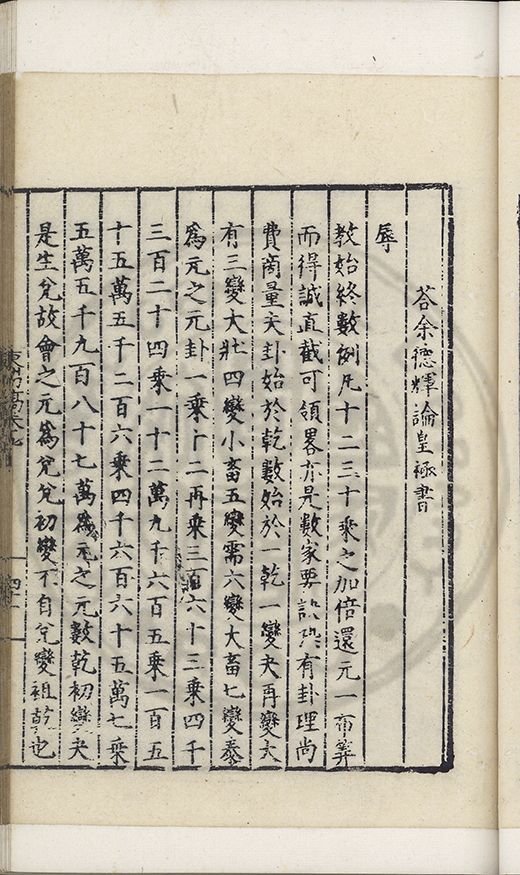 荅余德輝論皇極書
辱
教始終數例凡十二三十乘之加倍還元一布筭
而得誠直截可領畧亦是數家要訣恐有卦理尚
費商量夫卦始於乾數始於一乾一變夬再變大
有三變大壯四變小畜五變需六變大畜七變泰
爲元之元卦一乘十二再乘三百六十三乘四千
三百二十四乘一十二萬九千六百五乘一百五
十五萬五千二百六乘四千六百六十五萬七乘
五萬五千九百八十七萬爲元之元數乾初變夬
是生兌故會之元爲兌兌初變不自兌變祖乾也